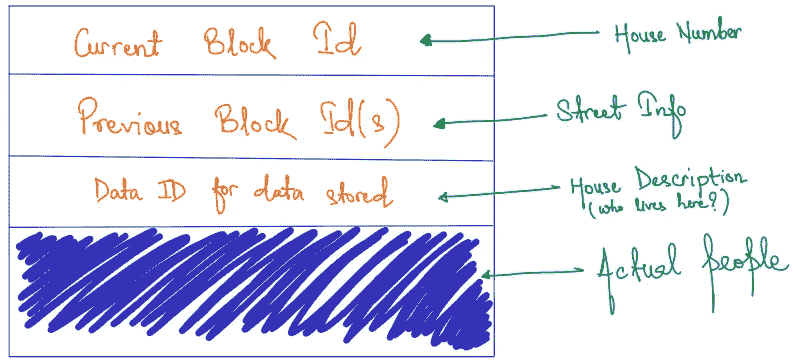 Current Block Id
House Number
Previous Block Id(s)
Street Info
Data ID for data stored
House Description
(who lives here?)
Actual people